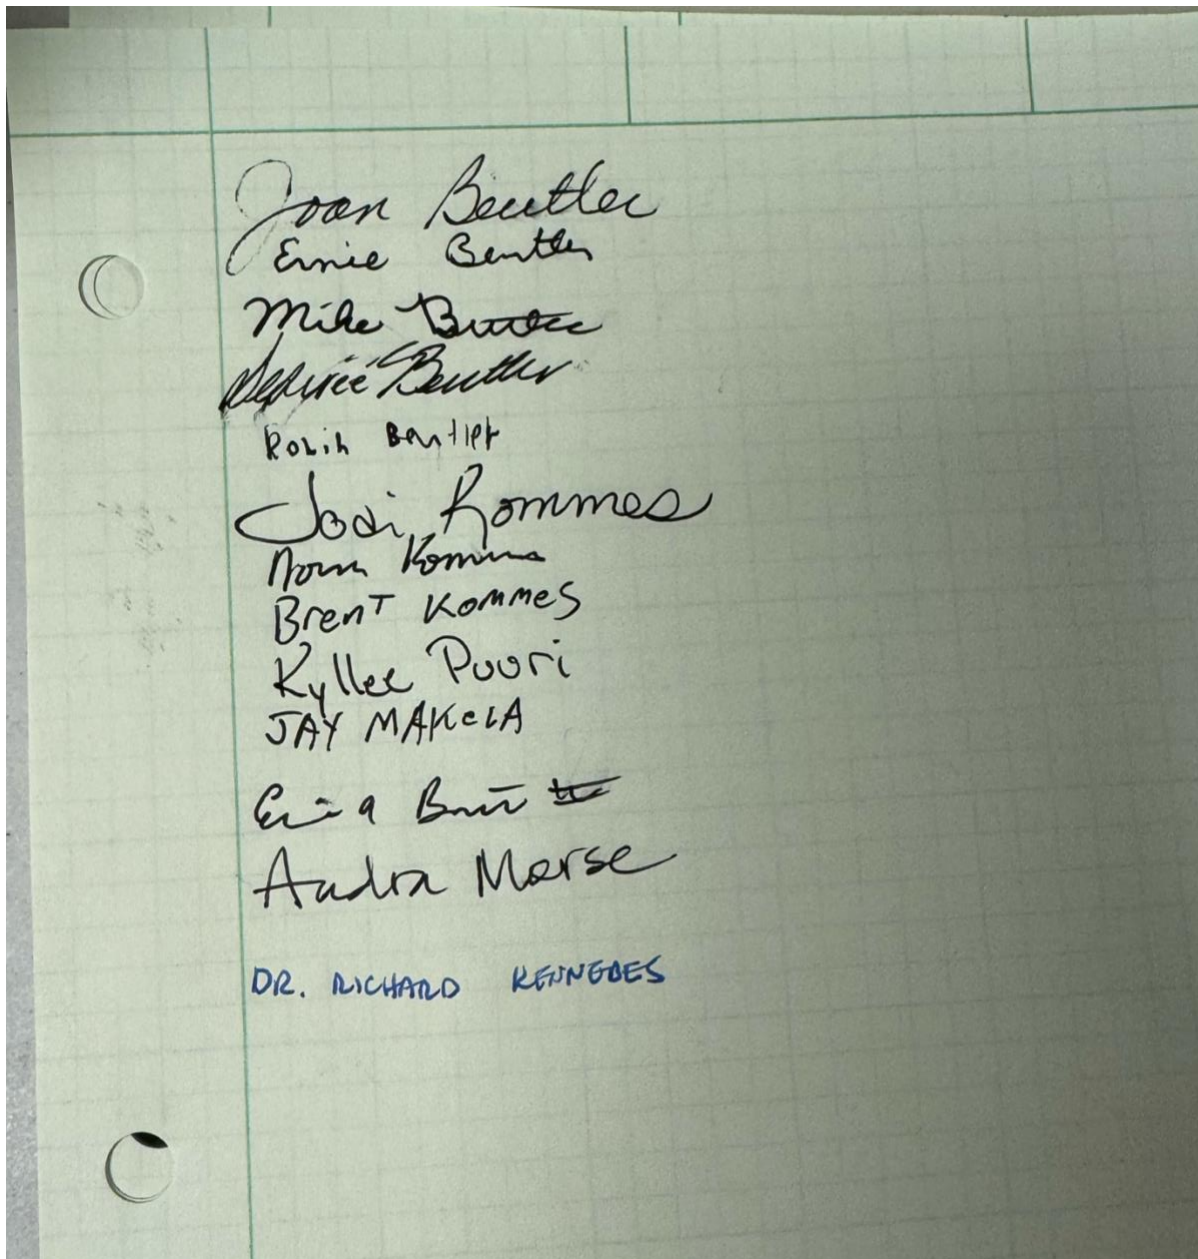 Joan Beutler
Ernie Beutler
Mike Beutler
Desiree Beutler
Robin Beutler
Jodi Kommes
Norm Kommes
Brent Kommes
Kyllee Puuri
JAY MAKeLA
Audra Morse
DR. RICHARD